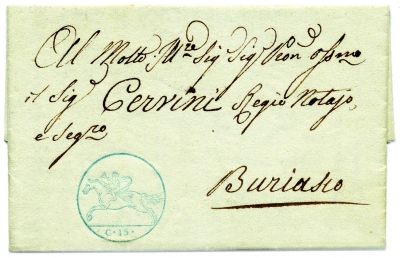 Al Molto Ill.re Sig.r Sig.r Pron Ossmo
il Sig.r Cervini Regio Notajo,
e Seg.ro
Buriasco
C. 15.